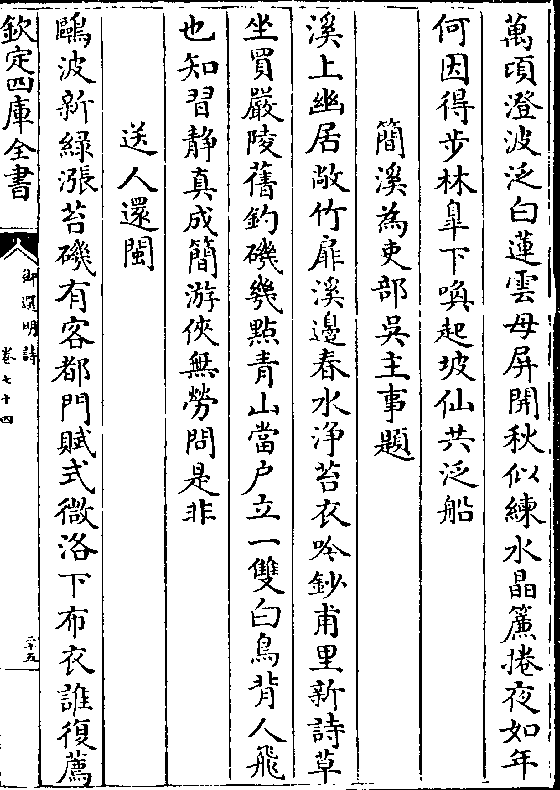 萬頃澄波泛白蓮雲母屏開秋似練水晶簾捲夜如年
何因得步林臯下喚起坡仙共泛船
簡溪為吏部吳主事題
溪上幽居敞竹扉溪邊春水浄苔衣吟鈔甫里新詩草
坐買嚴陵舊釣磯幾點青山當户立一雙白鳥背人飛
也知習静真成簡游俠無勞問是非
送人還閩
鷗波新緑漲苔磯有客都門賦式微洛下布衣誰復薦
欽定四庫全書
御選明詩
卷七十四
二十五